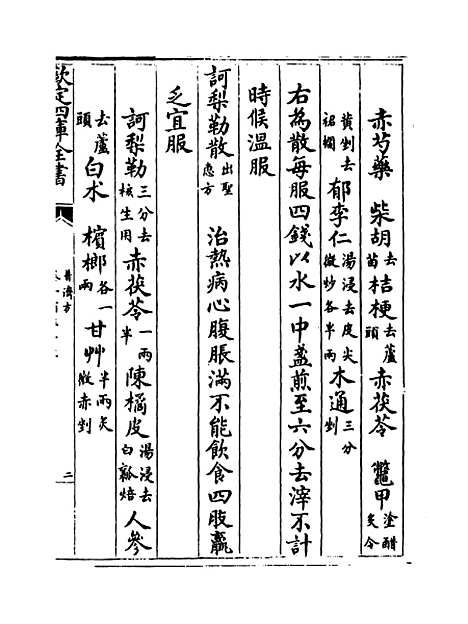 赤芍藥 柴胡去苗 桔梗去蘆頭 赤茯苓 鼈甲塗醋炙令
黄剉去裙襴 郁李仁湯浸去皮尖微炒各半兩 木通三分剉
右為散每服四錢以水一中盞煎至六分去滓不計
時候溫服
訶梨勒散出聖惠方 治熱病心腹脹滿不能飲食四肢羸
乏宜服
訶梨勒三分去核生用 赤茯苓一兩半 陳橘皮湯浸去白瓤焙 人參
去蘆頭 白术 檳榔各一兩 甘艸半兩炙微赤剉
欽定四庫全書
普濟方
二